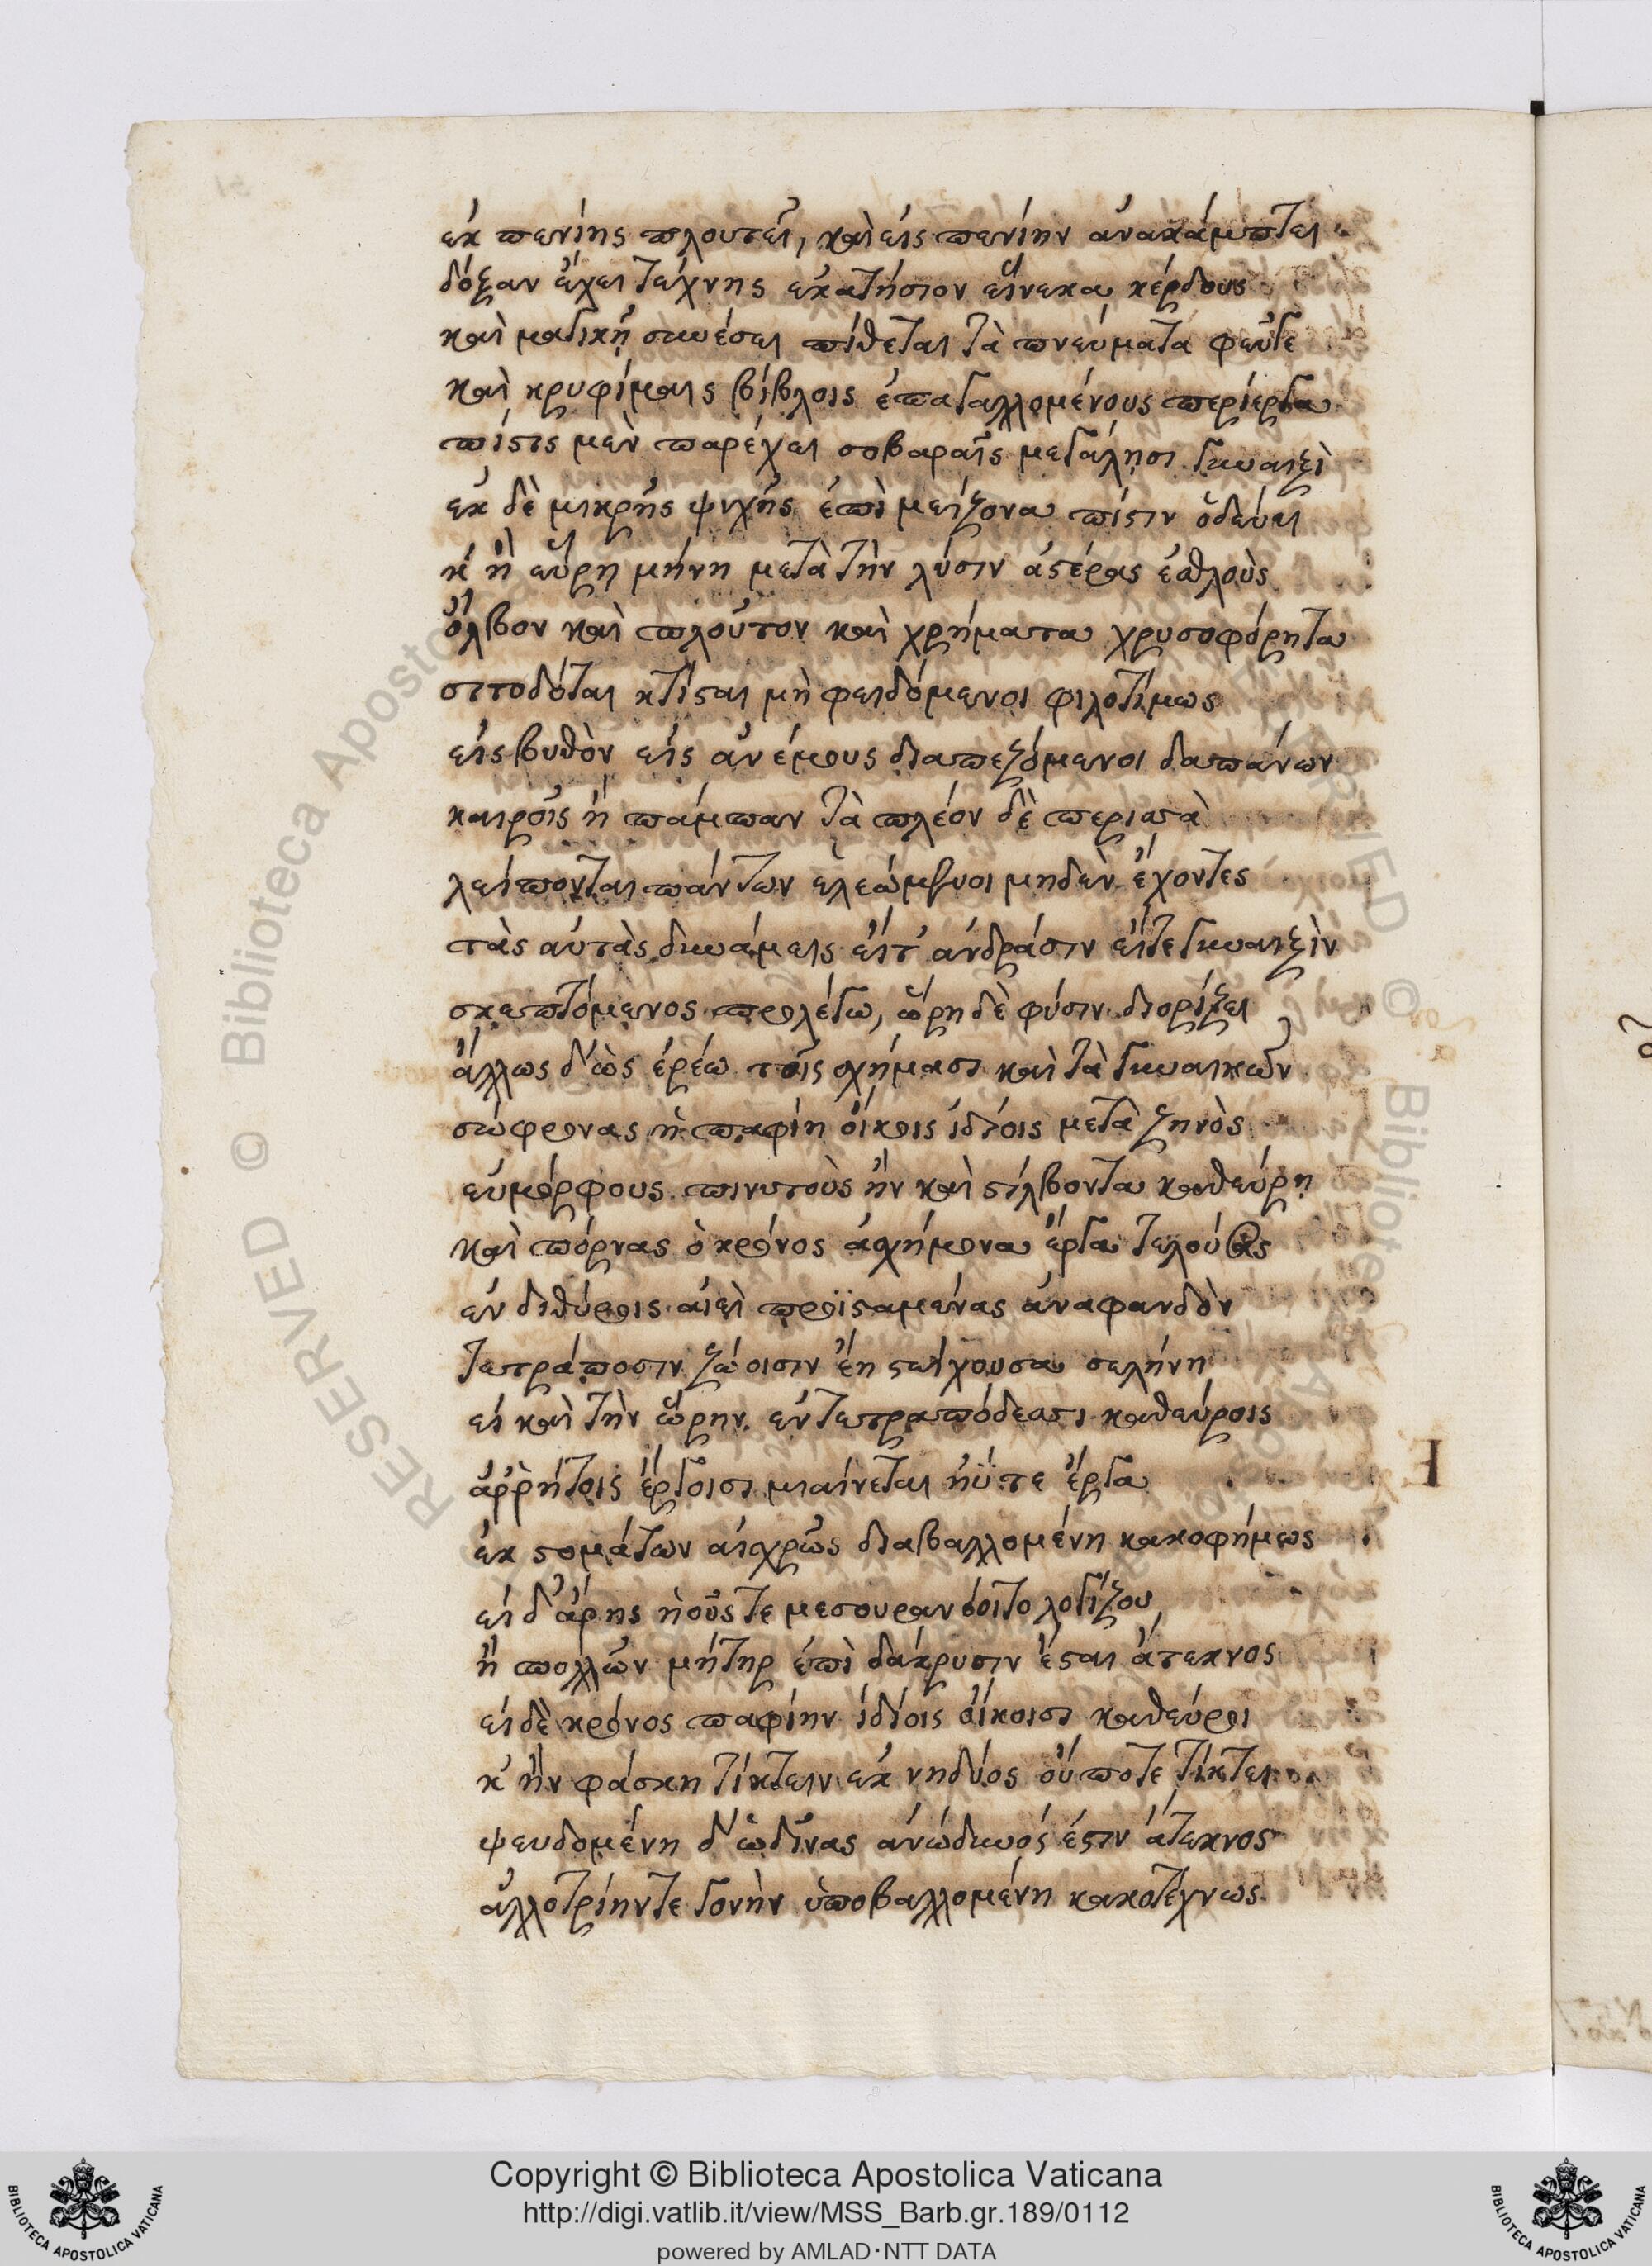 ἐκ πενίης πλουτεῖ, καὶ εἰς πενίην ἀνακάμπτει
δόξαν ἔχει τέχνης ἑκατήσιον εἵνεκα κέρδους
καὶ μαγικῇ συνέσει πίθεται τὰ πνεύματα φεῦγε
καὶ κρυφίμαις βίβλοις ἐπαγαλλομένους περίεργα
πίστις μὲν παρέχει σοβαραῖς μεγάλησι γυναιξὶ
ἐκ δὲ μικρῆς ψυχῆς ἐπὶ μείζονα πίστιν ὁδεύει
κ' ἢ εὕρῃ μήνη μετὰ τὴν λύσιν ἀστέρας ἐσθλοὺς
ὄλβον καὶ πλοῦτον καὶ χρήματα χρυσοφόρητα
σιτοδόται κτίσται μὴ φειδόμενοι φιλοτίμως
εἰς βυθὸν εἰς ἀνέμους διαπεζόμενοι δαπάνων
καιροῖς ἢ πάμπαν τὰ πλέον δὲ περισσὰ
λείπονται πάντων ἐλεώμενοι μηδὲν ἔχοντες
τὰς αὐτὰς δυνάμεις εἴτ' ἀνδράσιν εἴτε γυναιξὶν
σκεπτόμενος προλέγω, ὥρη δὲ φύσιν διορίζει
ἄλλως δ' ὡς ἐρέω τοῖς σχήμασι καὶ τὰ γυναικῶν
σώφρονας ἡ παφίη οἴκοις ἰδίοις μετὰ ζηνὸς
εὐμόρφους πινυτοὺς ἢν καὶ στίλβοντα καθεύρῃ
καὶ πόρνας ὁ κρόνος ἀσχήμονα ἔργα τελούσας
ἐν διθύροις αἰεὶ προϊσταμένας ἀναφανδὸν
τετράποσιν ζώοισιν ἔῃ στείχουσα σελήνη
εἰ καὶ τὴν ὥρην ἐν τετραπόδεσσι καθεύροις
ἀῤῥήτοις ἔργοισι μιαίνεται ἠΰτε ἔργα
ἐκ στομάτων αἰσχρῶς διαβαλλομένη κακοφήμως
εἰ δ' ἄρης ἠοῦς τε μεσουρανέοιτο λογίζου
ἢ πολλῶν μήτηρ ἐπὶ δάκρυσιν ἔσται ἄτεκνος
εἰ δὲ κρόνος παφίην ἰδίοις οἴκοισι καθεύροι
κ' ἢν φάσκῃ τίκτειν ἐκ νηδύος οὔποτε τίκτει
ψευδομένη δ' ὠδῖνας ἀνώδυνός ἐστιν ἄτεκνος
ἀλλοτρίην τε γονὴν ὑποβαλλομένη κακοτέχνως
Copyright © Biblioteca Apostolica Vaticana
http://digi.vatlib.it/view/MSS_Barb.gr.189/0112
powered by AMLAD·NTT DATA